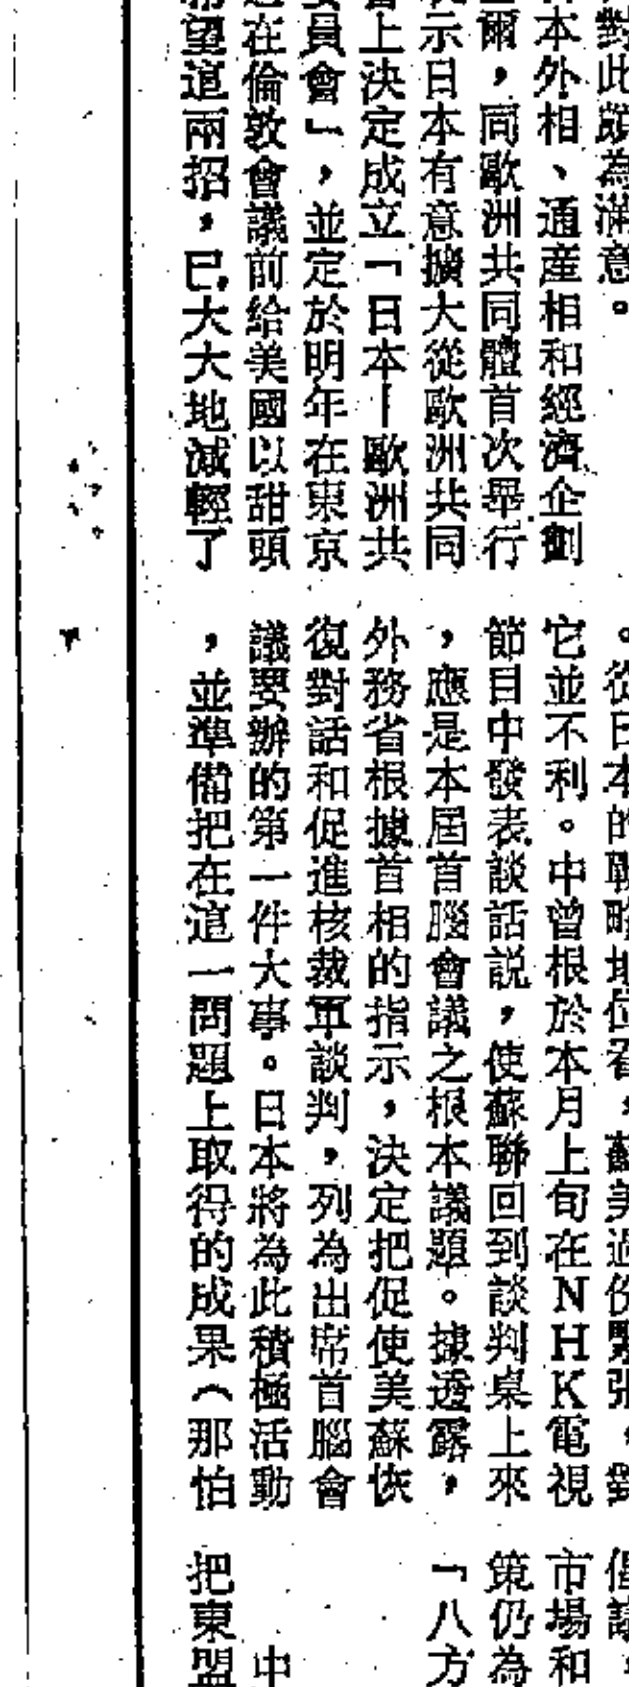 對此頗為滿意。
本外相、通産相和經濟企劃
爾，同歐洲共同體首次舉行
示日本有意擴大從歐洲共同
上決定成立「日本－歐洲共
員會」，並定於明年在東京
在倫敦會議前給美國以甜頭
望這兩招，已大大地減輕了
。從日本的戰略地位看，蘇美過份緊張，對
它並不利。中曾根於本月上旬在NHK電視
節目中發表談話説，使蘇聯回到談判桌上來
，應是本屆首腦會議之根本議題。據透露，
外務省根據首相的指示，決定把促使美蘇恢
復對話和促進核裁軍談判，列為出席首腦會
議要辦的第一件大事。日本將為此積極活動
，並準備把在這一問題上取得的成果（那怕
倡議，
市場和
策仍為
「八方
中
把東盟